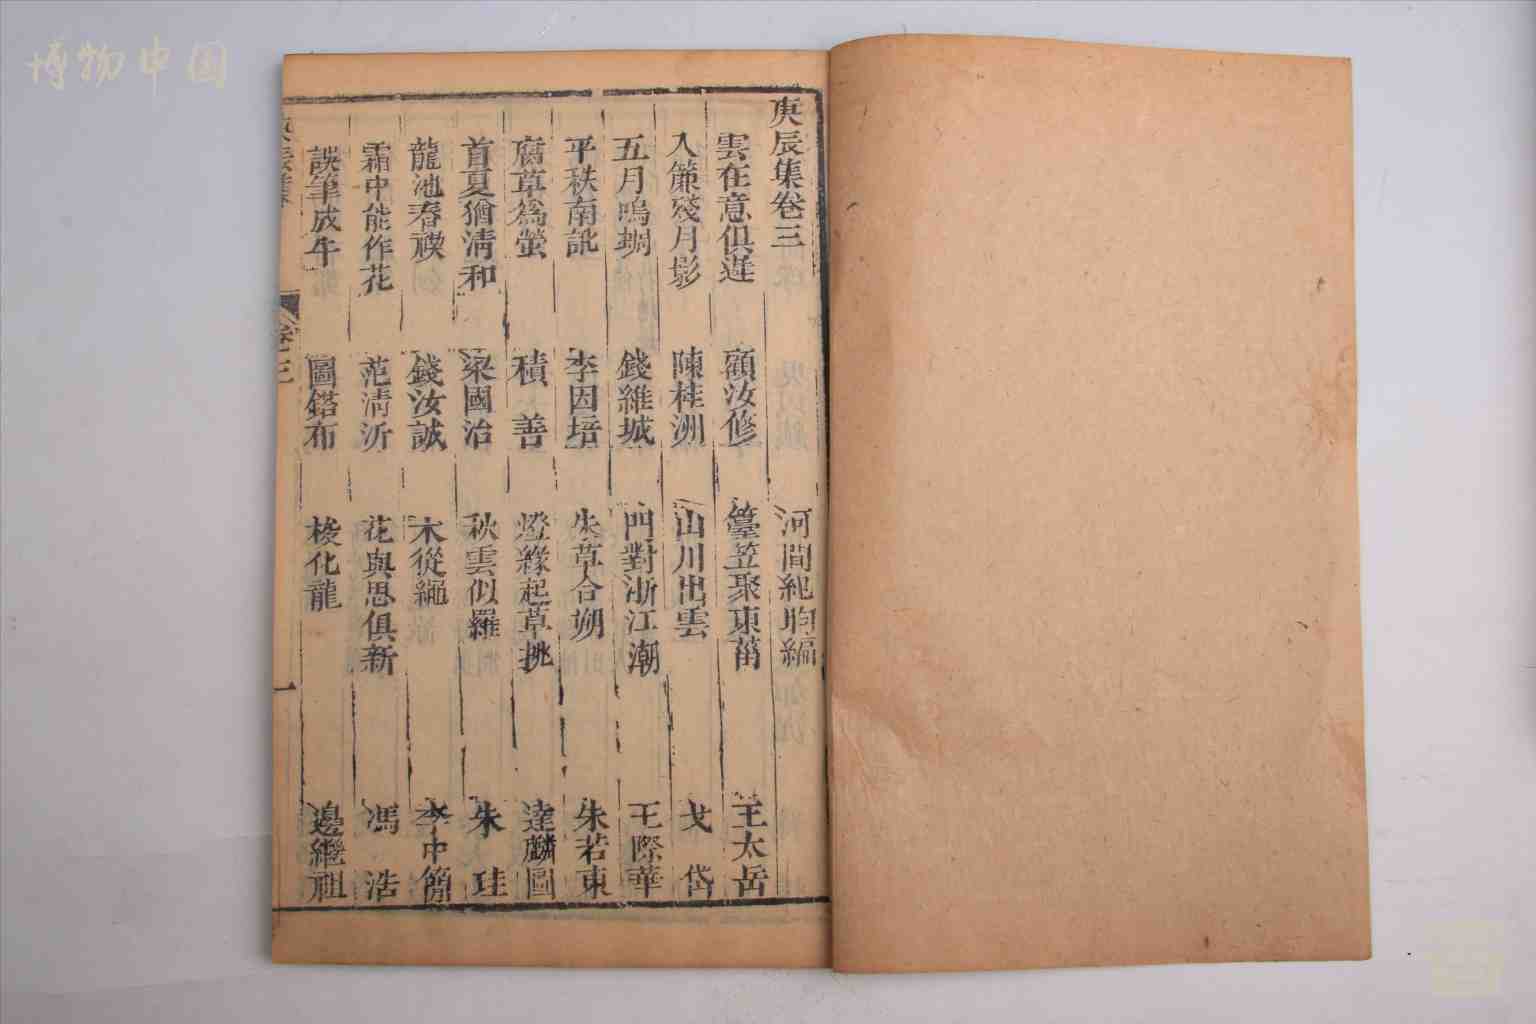 博物中国
庚辰集卷三
河間紀昀編
雲在意俱遲 顧汝修 臺笠聚東菑 王太岳
入簾殘月影 陳桂洲 山川出雲 戈岱
五月鳴蜩 錢維城 門對浙江潮 王際華
平秩南訛 李因培 朱草合朔 朱若東
腐草爲螢 積善 燈緣起草挑 達麟圖
首夏猶淸和 梁國治 秋雲似羅 朱珪
龍池春禊 錢汝誠 木從繩 李中簡
霜中能作花 范淸沂 花與思俱新 馮浩
誤筆成牛 圖鎝布 梭化龍 邊繼祖
卷三
一